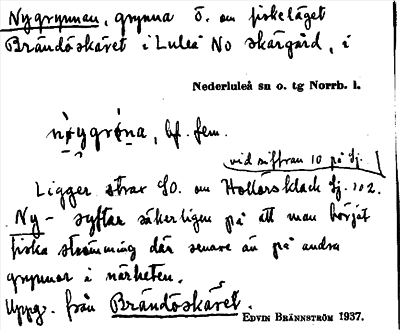 Nygrynnan, grynna Ö. om fiskeläget
Brändöskäret i Luleå No skärgård, i
Nederluleå sn o. tg Norrb. l.
bf. fem.
vid siffran 10 på Sj.
Ligger strax SO. om Hollorsklack Sj. 102.
Ny- syftar säkerligen på att man börjat
fiska strömming där senare än på andra
grynnor i närheten.
Uppg. från Brändöskäret.
EDVIN BRÄNNSTRÖM 1937.